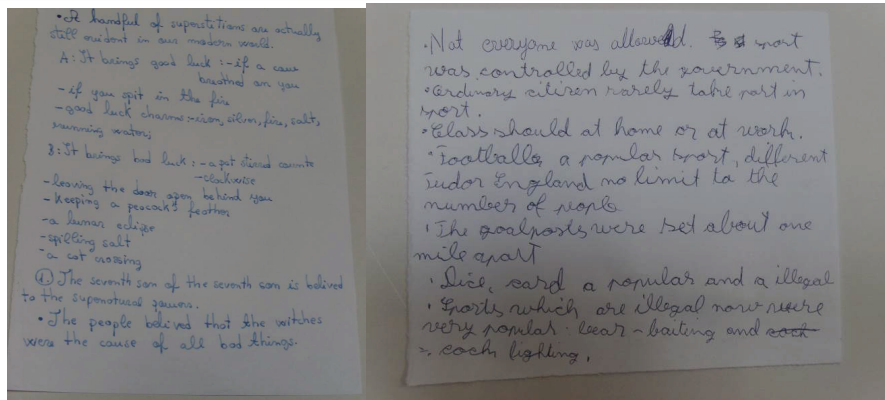 • A handful of superstitions are actually
still evident in our modern world.
A: It brings good luck: - if a cow
breathed on you
- if you spit in the fire
- good luck charms: iron, silver, fire, salt,
running water,
B: It brings bad luck: - a pot stirred counte
- clockwise
- leaving the door open behind you
- Keeping a peacock's feather
- a lunar eclipse
- spilling salt
- a cat crossing
The seventh son of the seventh son is belived
to the supernatural powers.
• The people belived that the witches
were the cause of all bad things.
• Not everyone was allowed. sport
was controlled by the government.
• Ordinary citizen rarely take part in
sport.
• Class should at home or at work.
• Football a popular sport, different
Tudor England no limit to the
number of people
• The goalposts were set about one
mile apart
• Dice, card a popular and a illegal
• Sports which are illegal now were
very popular: bear-baiting and cock
cock fighting.